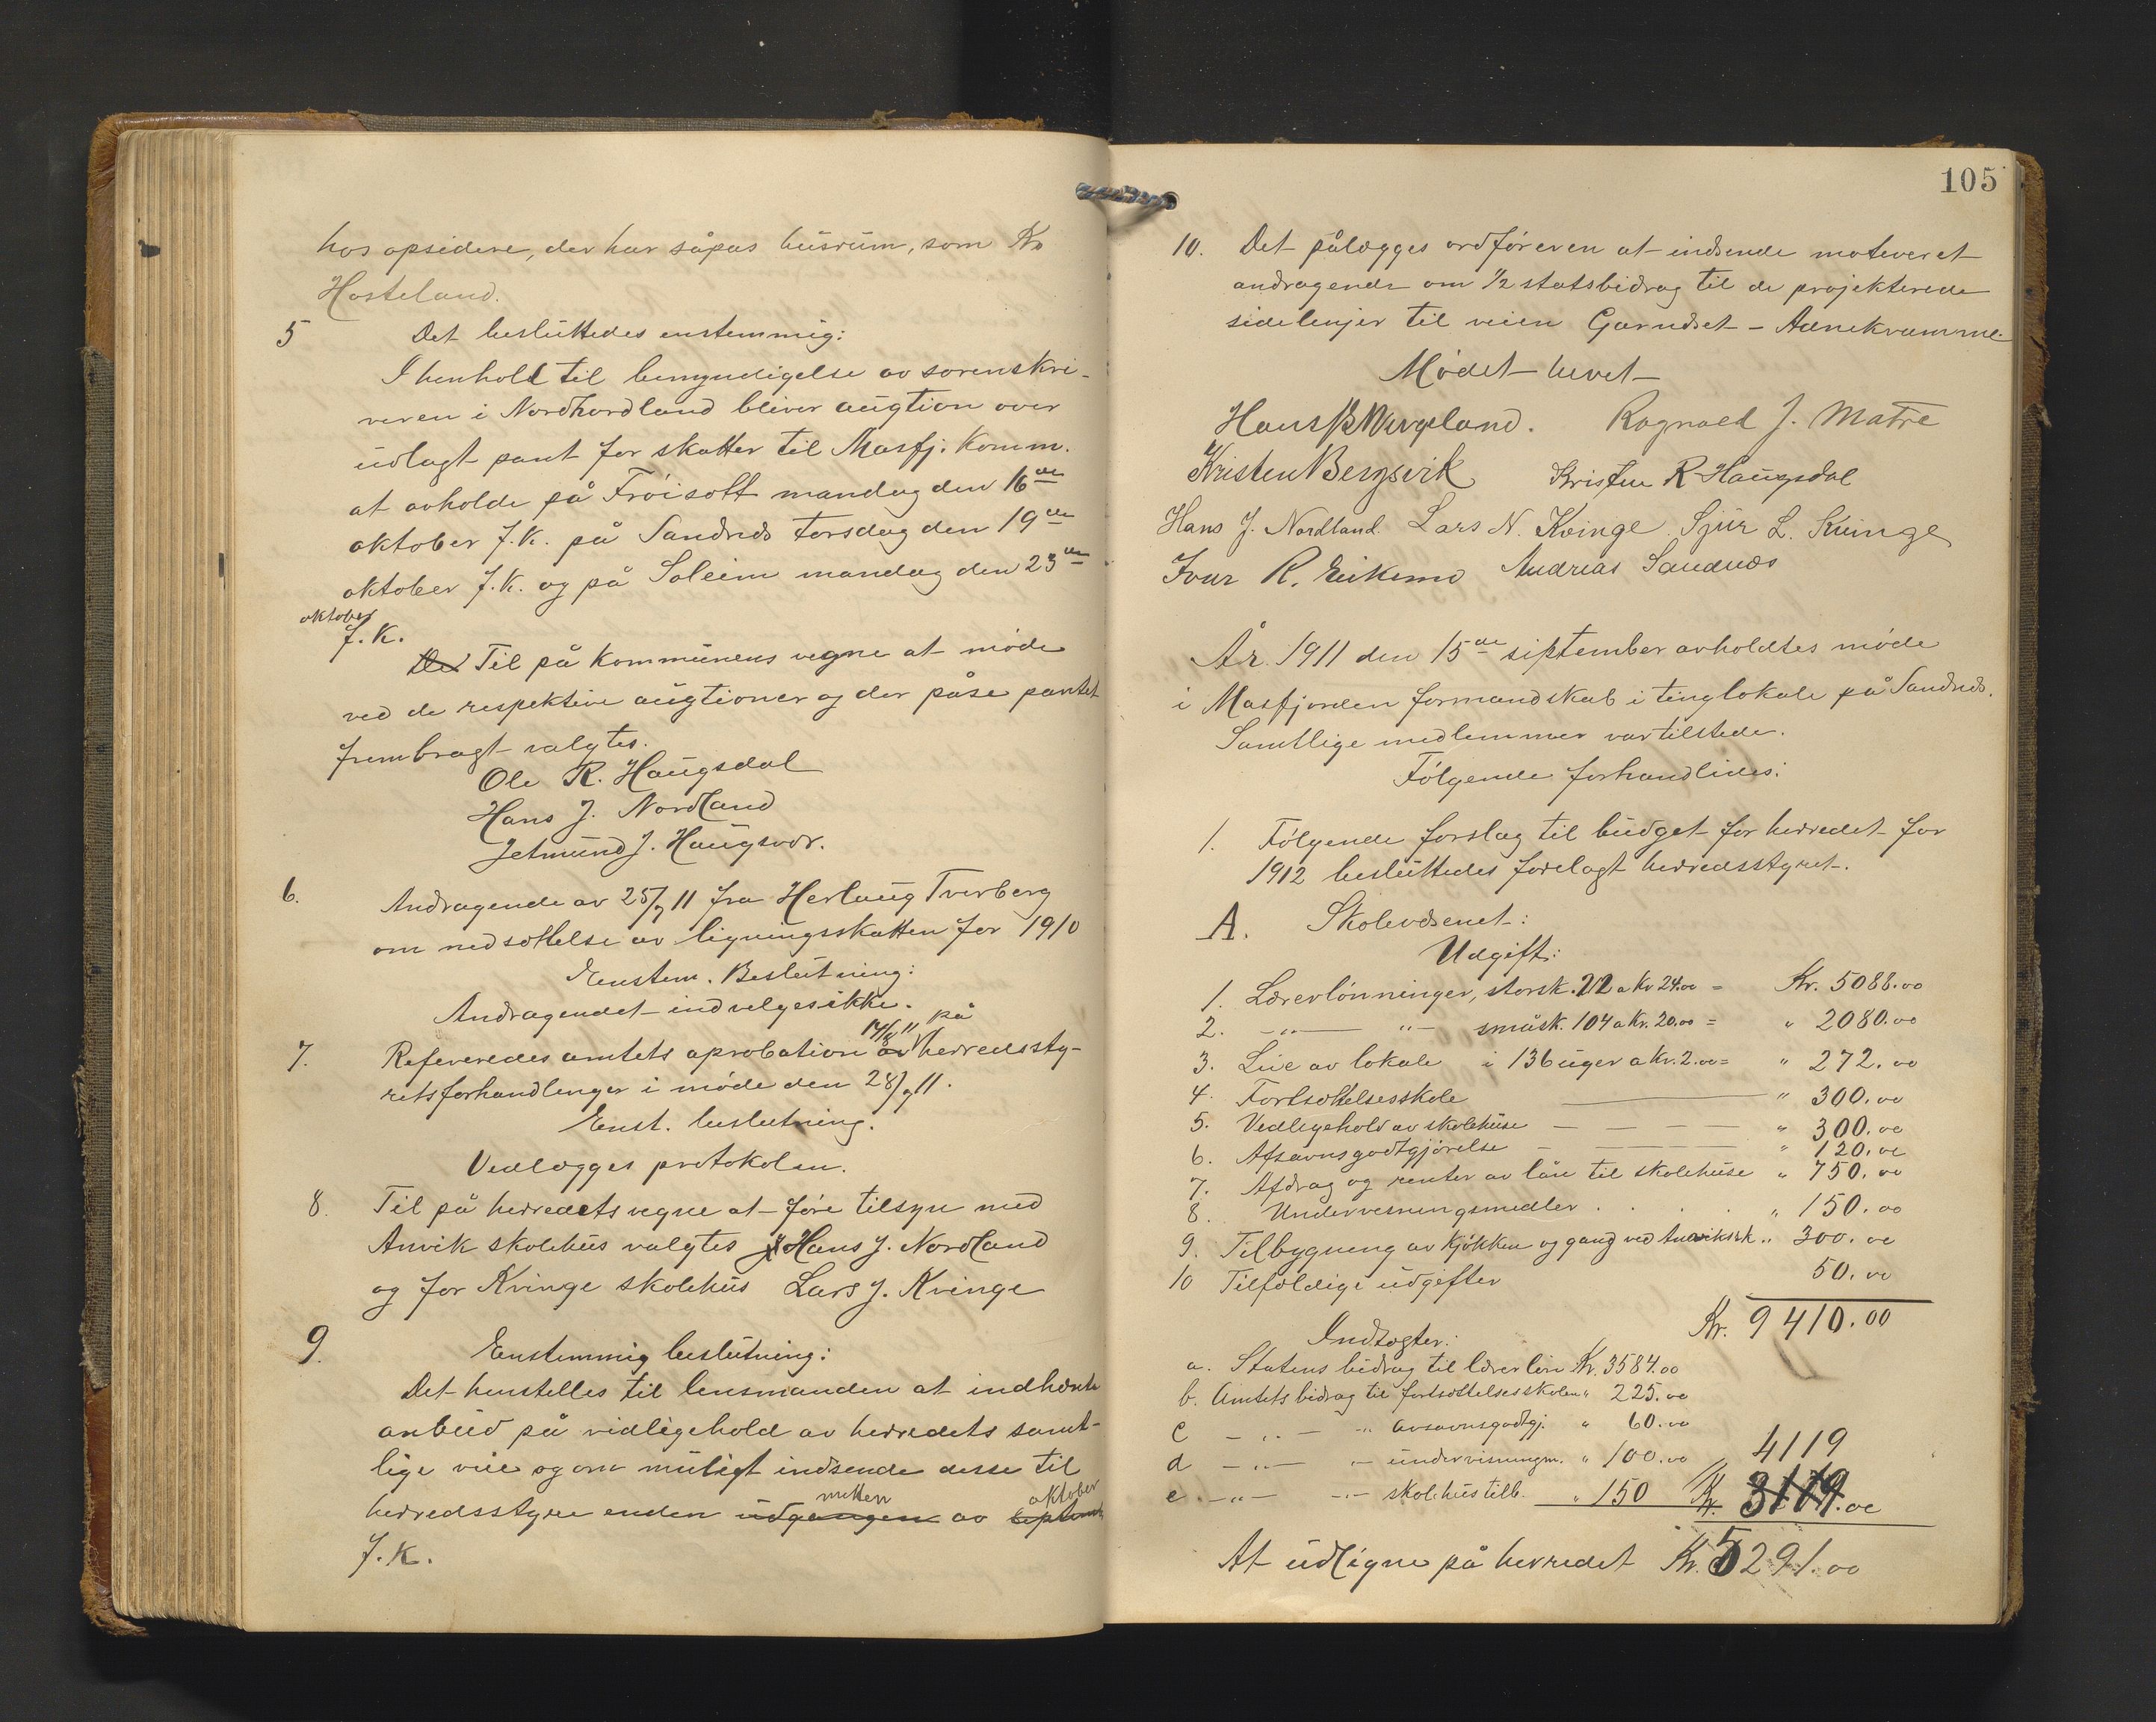 hos opsidere, der har såpas husrum, som Kr
Hosteland.
5 Det besluttedes enstemmig:
I henhold til bemyndigelse av sorenskri-
veren i Nordhordland bliver augtion over
udlagt pant for skatter til Masfj. Komm.
at avholde på Frøisett mandag den 16de
oktober f.k. på Sandnæs torsdag den 19de
oktober f.k. og på Soleim mandag den 23de
oktober
f.k.
Det Til på kommunens vegne at møde
ved de respektive augtioner og der påse pantet
frembragt valgtes.
Ole R. Haugsdal
Hans J. Nordland
Jetmund J. Haugsvær.
6. Andragende av 25/7 11 fra Herlaug Tverberg
om nedsættelse av ligningsskatten for 1910
Enstem. Beslutning:
Andragendet indvelges ikke.
14/8 11 på
7. Refereredes amtets aprobation av herredssty-
rets forhandlinger i møde den 28/7 11.
Enst. beslutning.
Vedlægges protokolen.
8. Til på herredets vegne at føre tilsyn med
Anvik skolehus valgtes Hans J. Nordland
og for Kvinge skolehus Lars J. Kvinge
9. Enstemmig beslutning:
Det henstilles til lensmanden at indhente
anbud på vidligehold av herredets samt-
lige veie og om muligt indsende desse til
midten oktober
herredsstyre enden udgangen av septemb
f.k.
105
10. Det pålægges ordføreren at indsende moteveret
andragende om 1/2 statsbidrag til de projekterede
sidelinjer til veien Garndset - Adnekvamme.
Mødet hevet
Hans B Nurgeland. Ragnald J. Matre
Kristen Bergsvik Kristen R Haugsdal
Hans J. Nordland. Lars N. Kvinge. Sjur L. Kvinge
Ivar R. Eikemo Andreas Sandnæs
År 1911 den 15de september avholdtes møde
i Masfjorden formandskab i tinglokale på Sandnæs.
Samtlige medlemmer var tilstede.
Følgende forhandledes:
1. Følgende forslag til budget for herredet for
1912 besluttedes forelagt herredsstyret.
A. Skolevæsenet:
Udgift:
1. Lærerlønninger, storsk. 212 a Kr 24.00 = Kr. 5088.00
2. -"- "- småsk. 104 a Kr. 20.00 = " 2080.00
3. Leie av lokale i 136 uger a Kr. 2.00 = " 272.00
4. Fortsættelsesskole " 300.00
5. Vedligehold av skolehuse " 300.00
6. Afsavnsgodtgjørelse " 120.00
7. Afdrag og renter av lån til skolehuse " 750.00
8. Undervesningsmedler . . . . " 150.00
9. Tilbygning av kjøkken og gang ved Anviksk " 300.00
10 Tilfældige udgifter 50.00
Kr. 9410.00
Indtægter:
a. Statens bidrag til lærerløn Kr. 3584.00
b. Amtets bidrag til fortsættelsesskolen " 225.00
c -"- -"- avsavnsgodtgj. " 60.00
d -"- -"- undervisningm. " 100.00 4119
e. -"- -"- skolehustilb. " 150 Kr. 3119.00
At udligne på herredet Kr. 5291.00